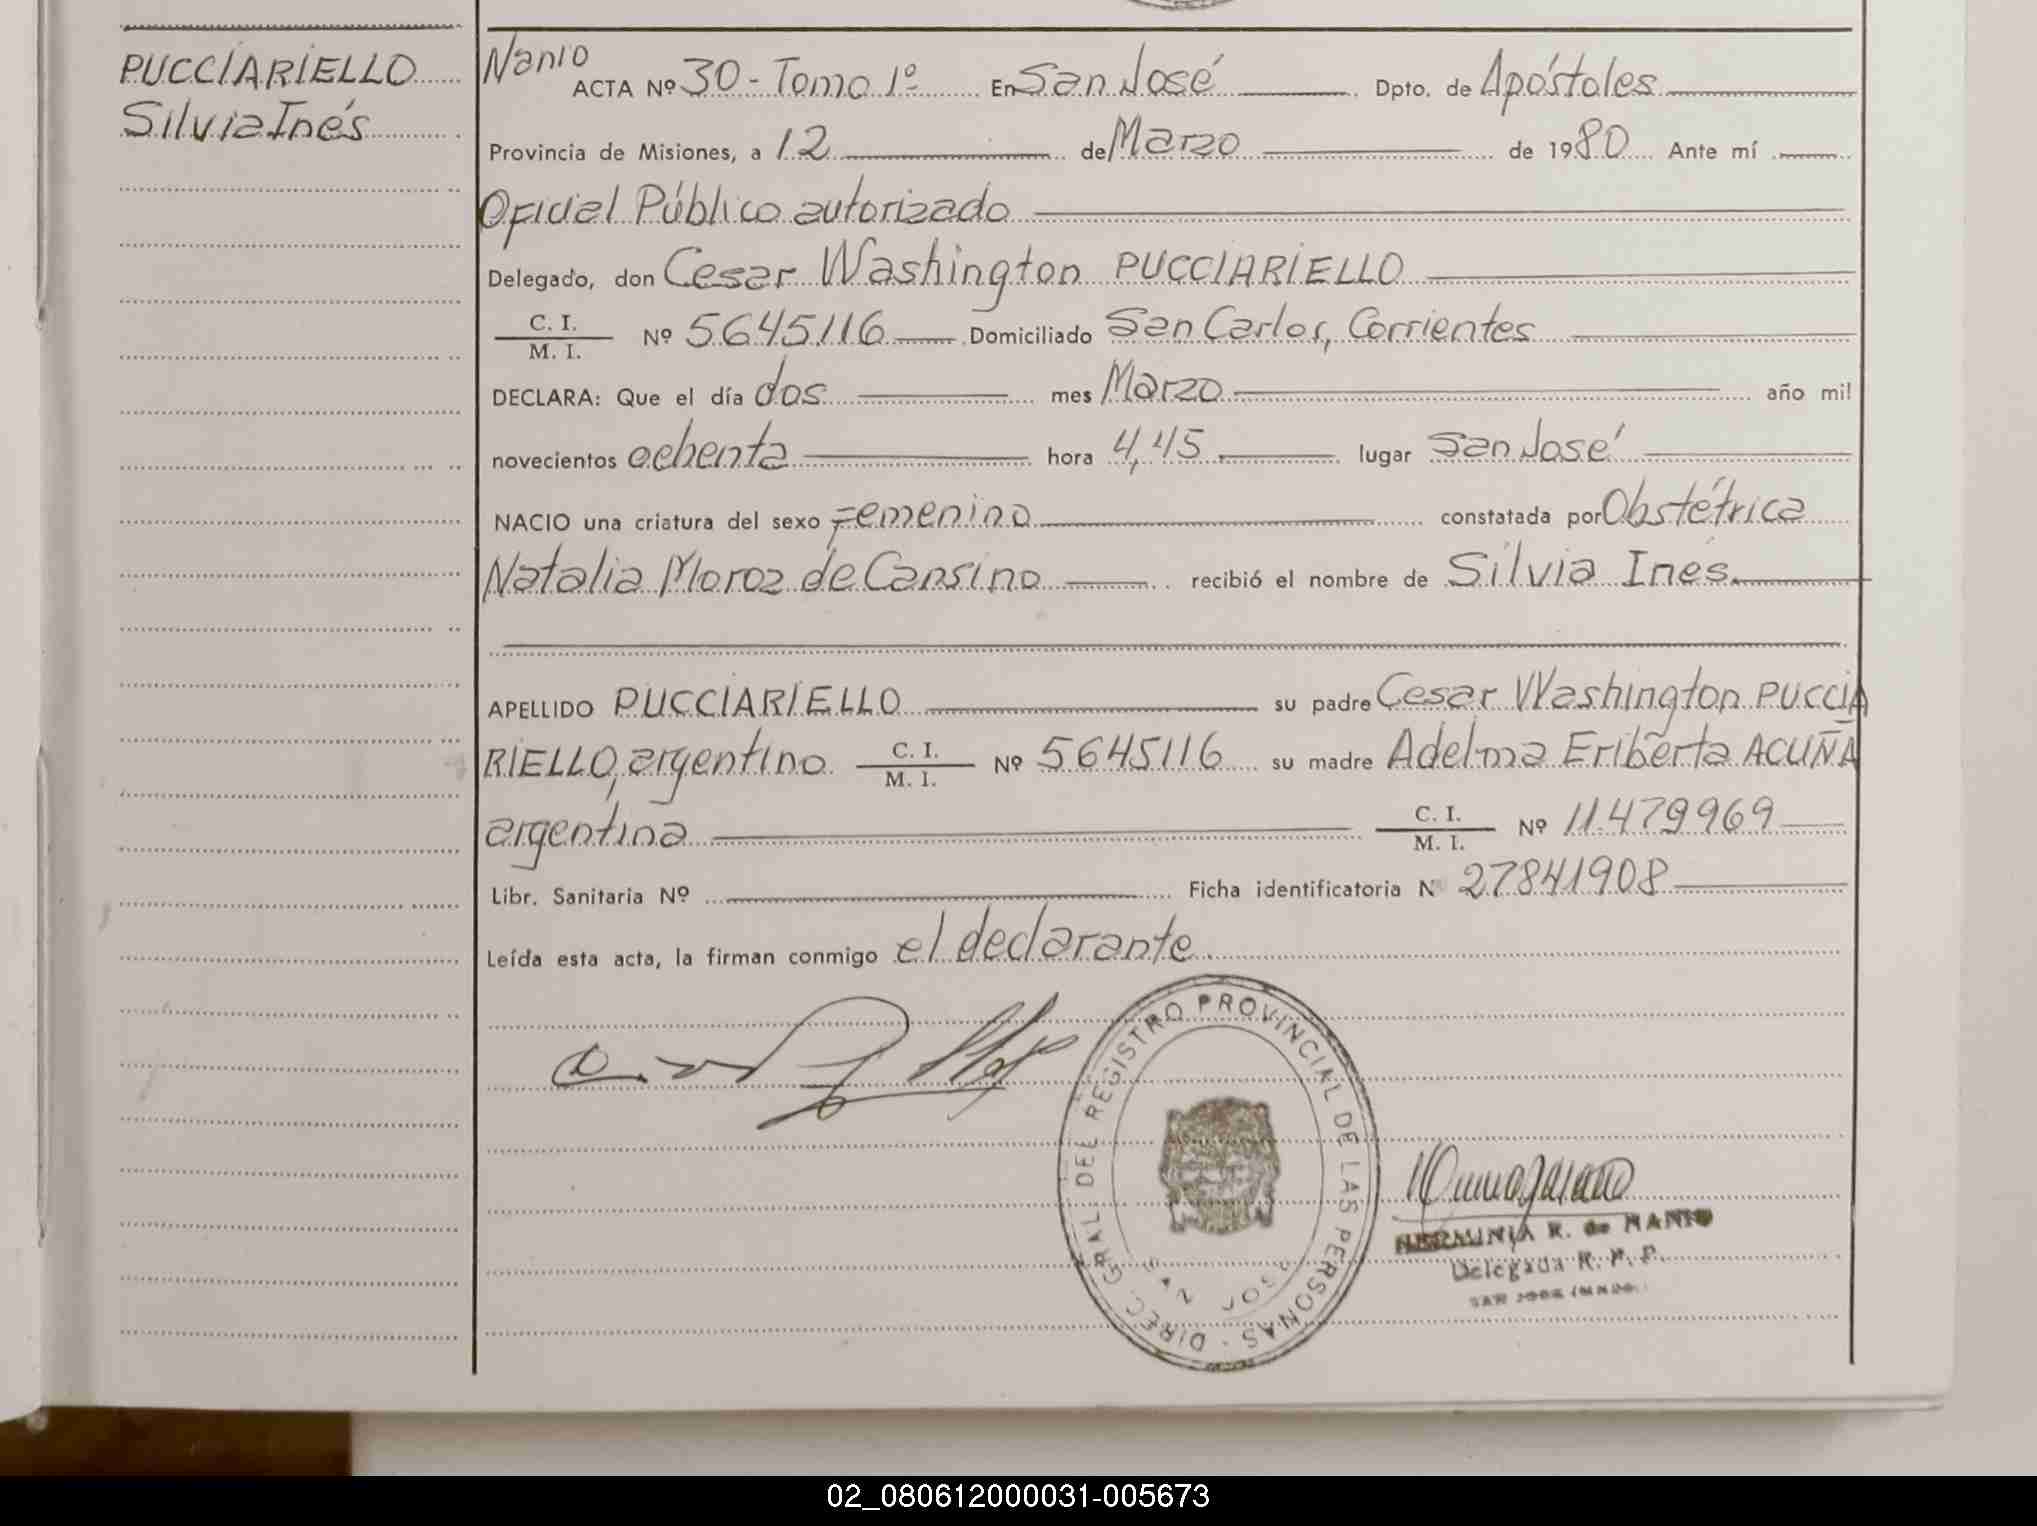 PUCCIARIELLO
Silvia Inés
Nanio
ACTA Nº 30 - Tomo 1º En San José Dpto. de Apóstoles
Provincia de Misiones, a 12 de Marzo de 1980 Ante mí
Oficial Público autorizado
Delegado, don Cesar Washington PUCCIARIELLO
C. I.
M. I. Nº 5645116 Domiciliado San Carlos, Corrientes
DECLARA: Que el día dos mes Marzo año mil
novecientos ochenta hora 4,45 lugar San José
NACIO una criatura del sexo Femenino constatada por Obstétrica
Natalia Moroz de Cansino recibió el nombre de Silvia Inés.
APELLIDO PUCCIARIELLO su padre Cesar Washington PUCCIA
RIELLO, argentino C. I. M. I. Nº 5645116 su madre Adelma Eriberta ACUÑA
argentina C. I. M. I. Nº 11.479969
Libr. Sanitaria Nº Ficha identificatoria N 27841908
Leída esta acta, la firman conmigo el declarante.
DIREC. GRAL. DEL REGISTRO PROVINCIAL DE LAS PERSONAS -
SAN JOSE
HERMINIA R. de NANIO
Delegada R. P. P.
02_080612000031-005673